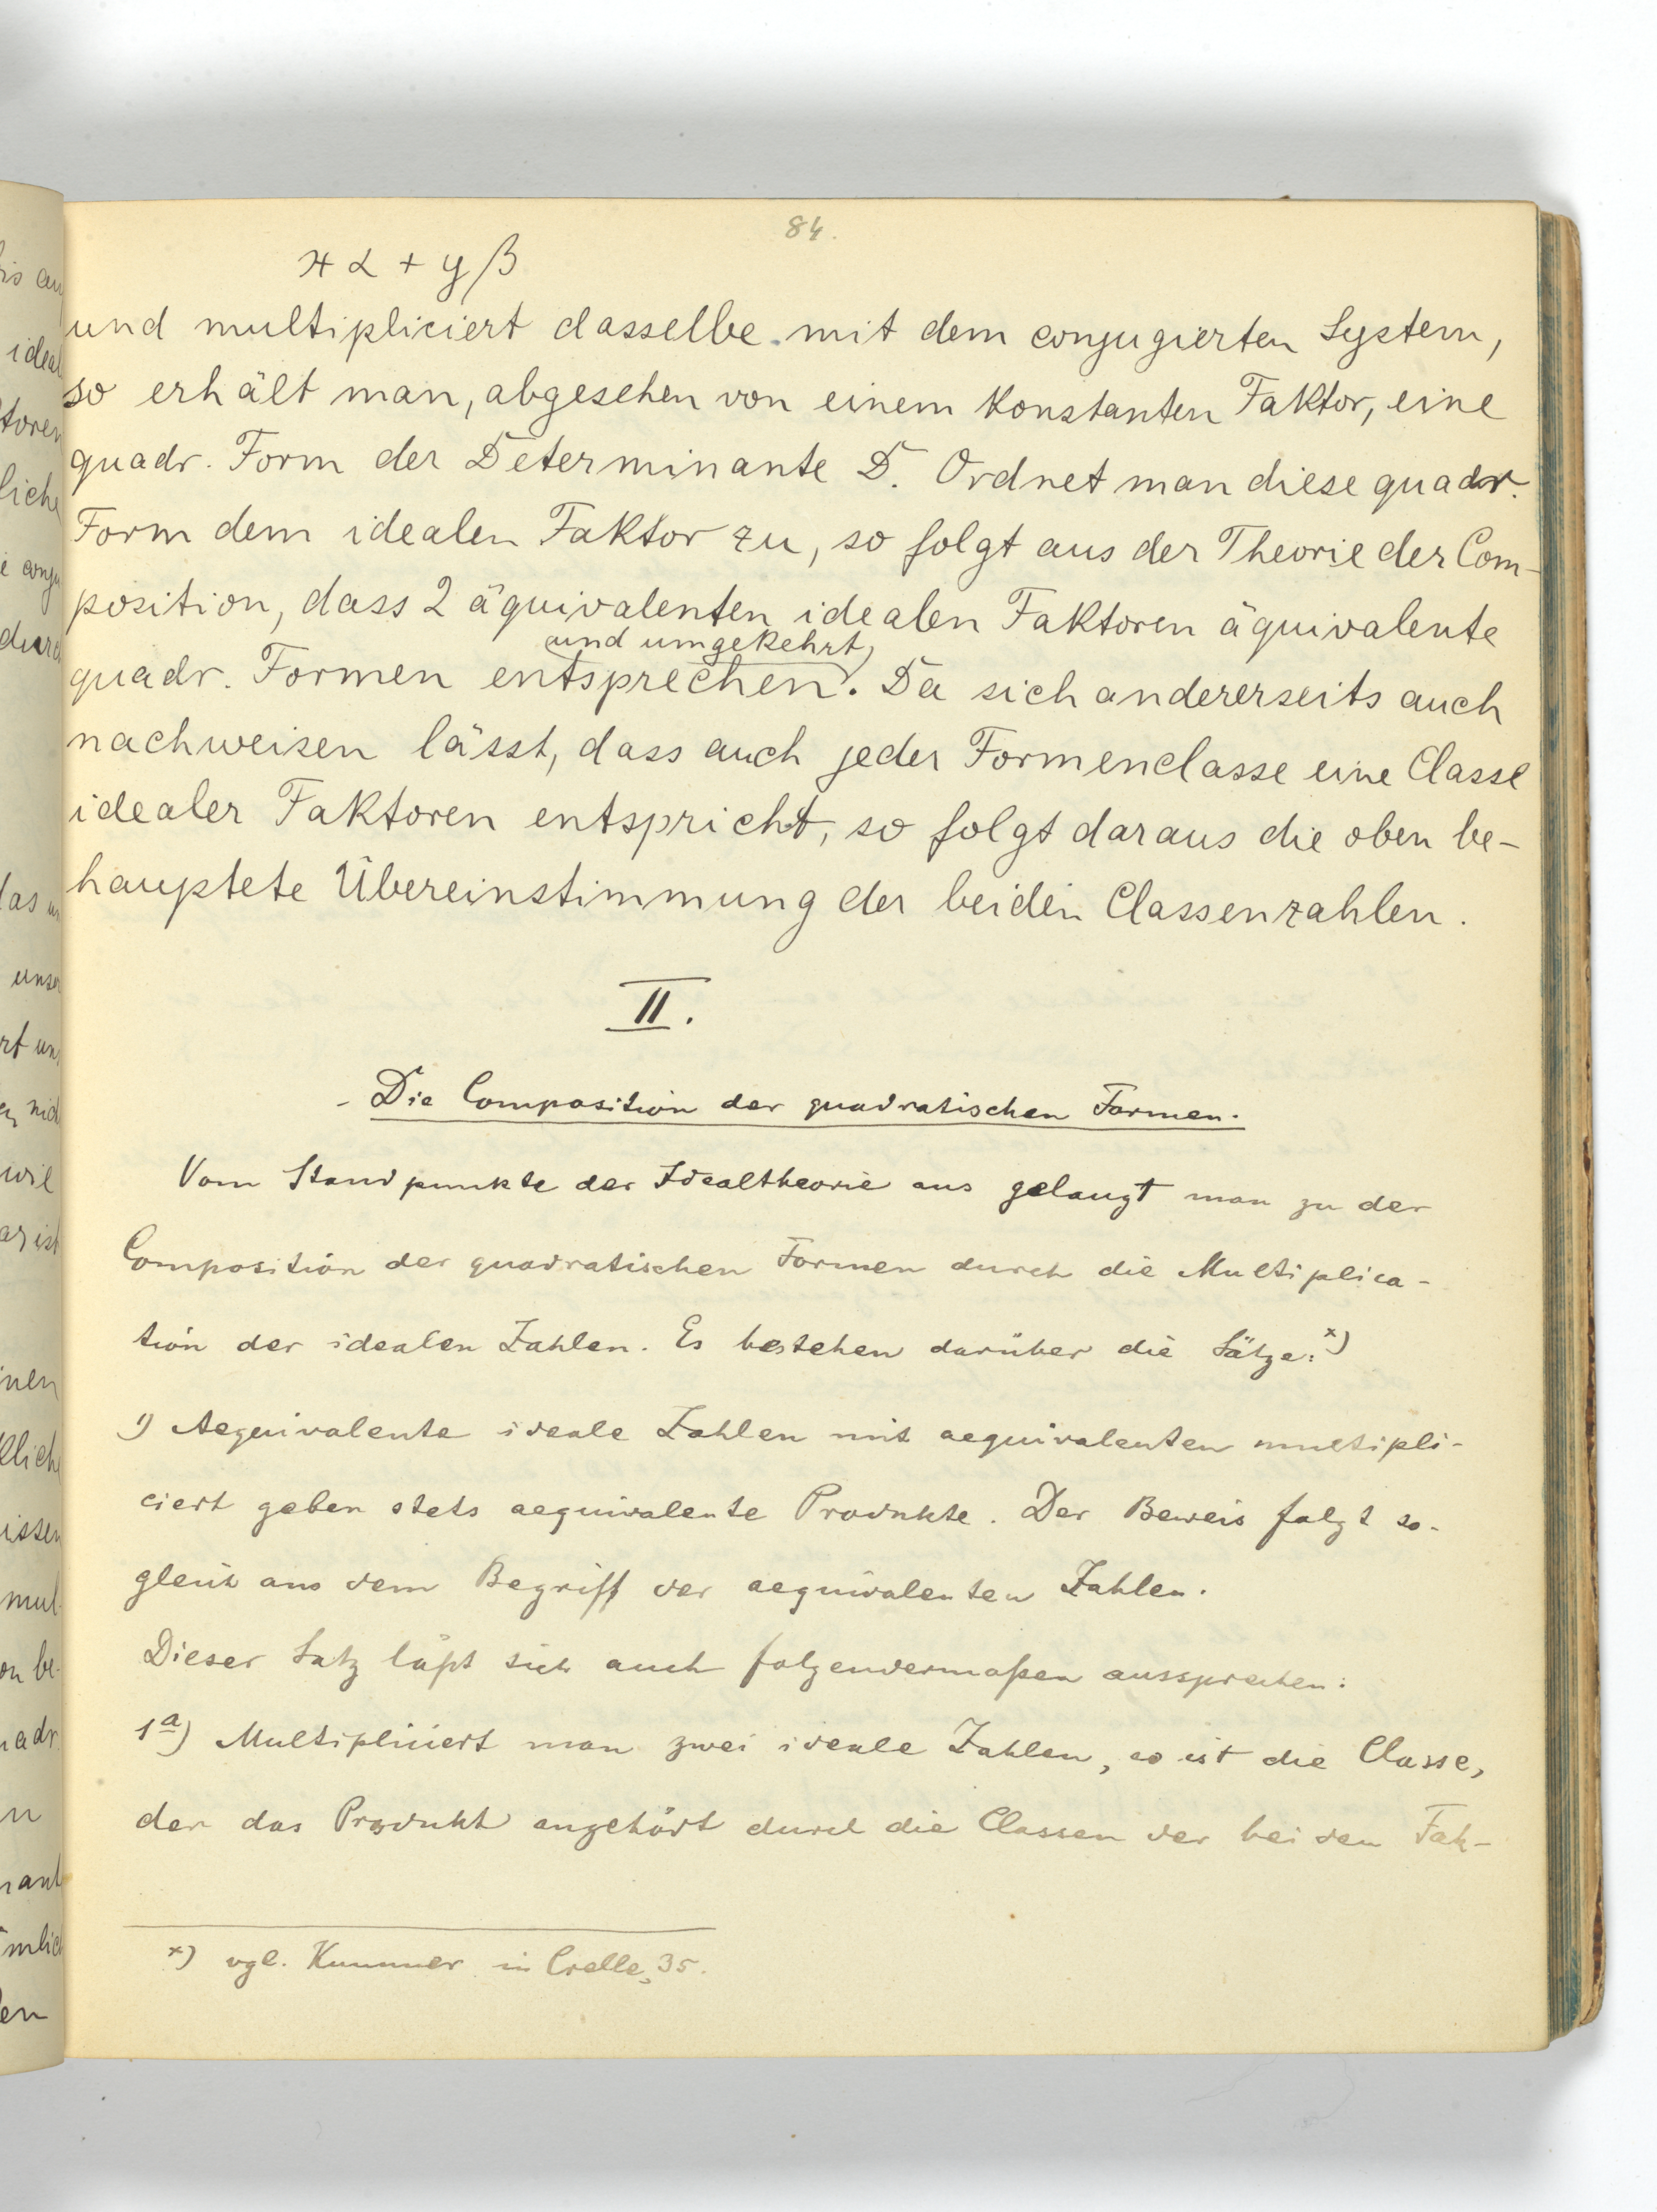 84.
xα + yβ
und multipliciert dasselbe mit dem conjugierten System,
so erhält man, abgesehen von einem konstanten Faktor, eine
quadr. Form der Determinante D. Ordnet man diese quadr.
Form dem idealen Faktor zu, so folgt aus der Theorie der Com-
position, dass 2 äquivalenten idealen Faktoren äquivalente
und umgekehrt
quadr. Formen entsprechen. Da sich andererseits auch
nachweisen lässt, dass auch jeder Formenclasse eine Classe
idealer Faktoren entspricht, so folgt daraus die oben be-
hauptete Übereinstimmung der beiden Classenzahlen.
II.
- Die Composition der quadratischen Formen.
Vom Standpunkte der Idealtheorie aus gelangt man zu der
Composition der quadratischen Formen durch die Multiplica-
tion der idealen Zahlen. Es bestehen darüber die Sätze: x)
1) Aequivalente ideale Zahlen mit aequivalenten multipli-
ciert geben stets aequivalente Produkte. Der Beweis folgt so-
gleich aus dem Begriff der aequivalenten Zahlen.
Dieser Satz läßt sich auch folgendermaßen aussprechen:
1a) Multipliciert man zwei ideale Zahlen, so ist die Classe,
der das Produkt angehört durch die Classen der beiden Fak-
x) vgl. Kummer in Crelle, 35.